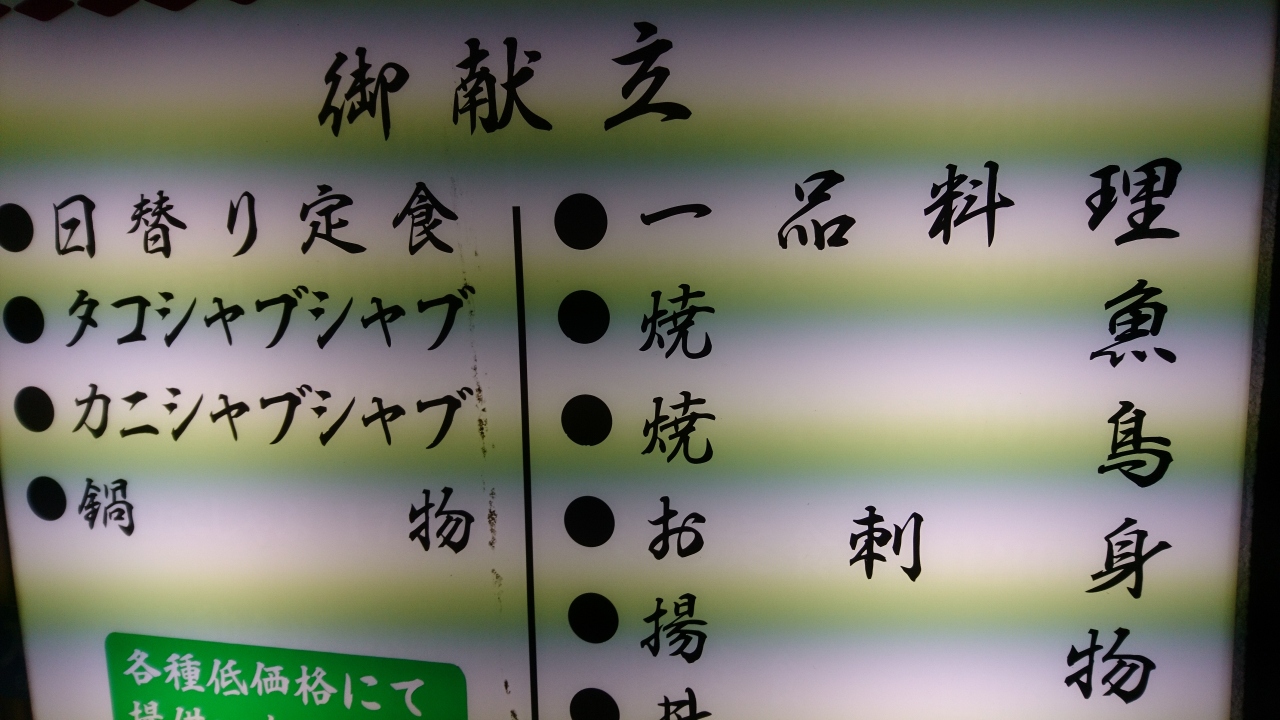 御献立
●日替り定食
●タコシャブシャブ
●カニシャブシャブ
●鍋物
各種低価格にて
●一品料理
●焼魚
●焼鳥
●お刺身
●揚物